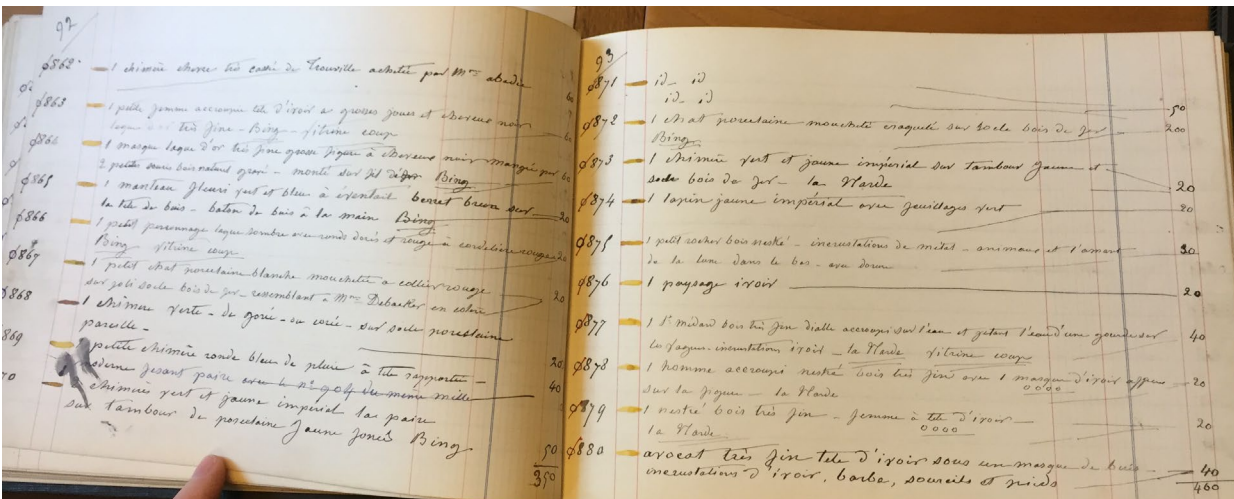 92
φ862 1 chimère chevre très cassée de Trouville achetée par Mme abadie 60
φ863 1 petite femme accroupie tete d'ivoir a grosses joues et cheveux noir
laque très fine - Bing - vitrine coup 60
φ864 1 masque laque d'or très fine grosse figure à cheveux noir mangée par 60
2 petites souris bois naturel - monté sur pié de fer Bing
φ865 1 manteau fleuri vert et bleu à éventail berret brun sur
la tete de bois - baton de bois à la main Bing 20
φ866 1 petit personnage laque sombre avec ronds dorés et rouge à cordelière rouge 20
Bing vitrine coup
φ867 1 petit chat porcelaine blanche mouchetée a collier rouge
sur joli socle bois de fer - ressemblant à Mme Debacker en colère 20
φ868 1 chimère verte - de - en corée - sur socle porcelaine
pareille - 20
869 petite chimère ronde bleu de pluie à tete rapportée -
moderne fesant paire avec le n° 904 du meme mille 40
70 chimères vert et jaune imperial la paire
sur tambour de porcelaine jaune foncés Bing 50
350
93
φ871 id- id
id- id 50
φ872 1 chat porcelaine moucheté craquelé sur socle bois de fer 200
Bing
φ873 1 chimère vert et jaune impérial sur tambour jaune et
socle bois de fer - la Narde 20
φ874 1 lapin jaune impérial avec feuillages vert 20
φ875 1 petit rocher bois netské - incrustations de métal - animaux et l'amant
de la lune dans le bas - 30
φ876 1 paysage ivoir 20
φ877 1 St médard bois très fin diable accroupi sur l'eau et jetant l'eau d'une gourde sur 40
les vagues - incrustations ivoir - la Narde vitrine coup
φ878 1 homme accroupi netské bois très fin avec 1 masque d'ivoir 20
sur la figure - la Narde 0000
φ879 1 netské bois très fin - femme à tete d'ivoir 20
la Narde 0000
φ880 avocat très fin tete d'ivoir sous un masque de buis 40
incrustations d'ivoir, barbe, sourcils et pieds 460